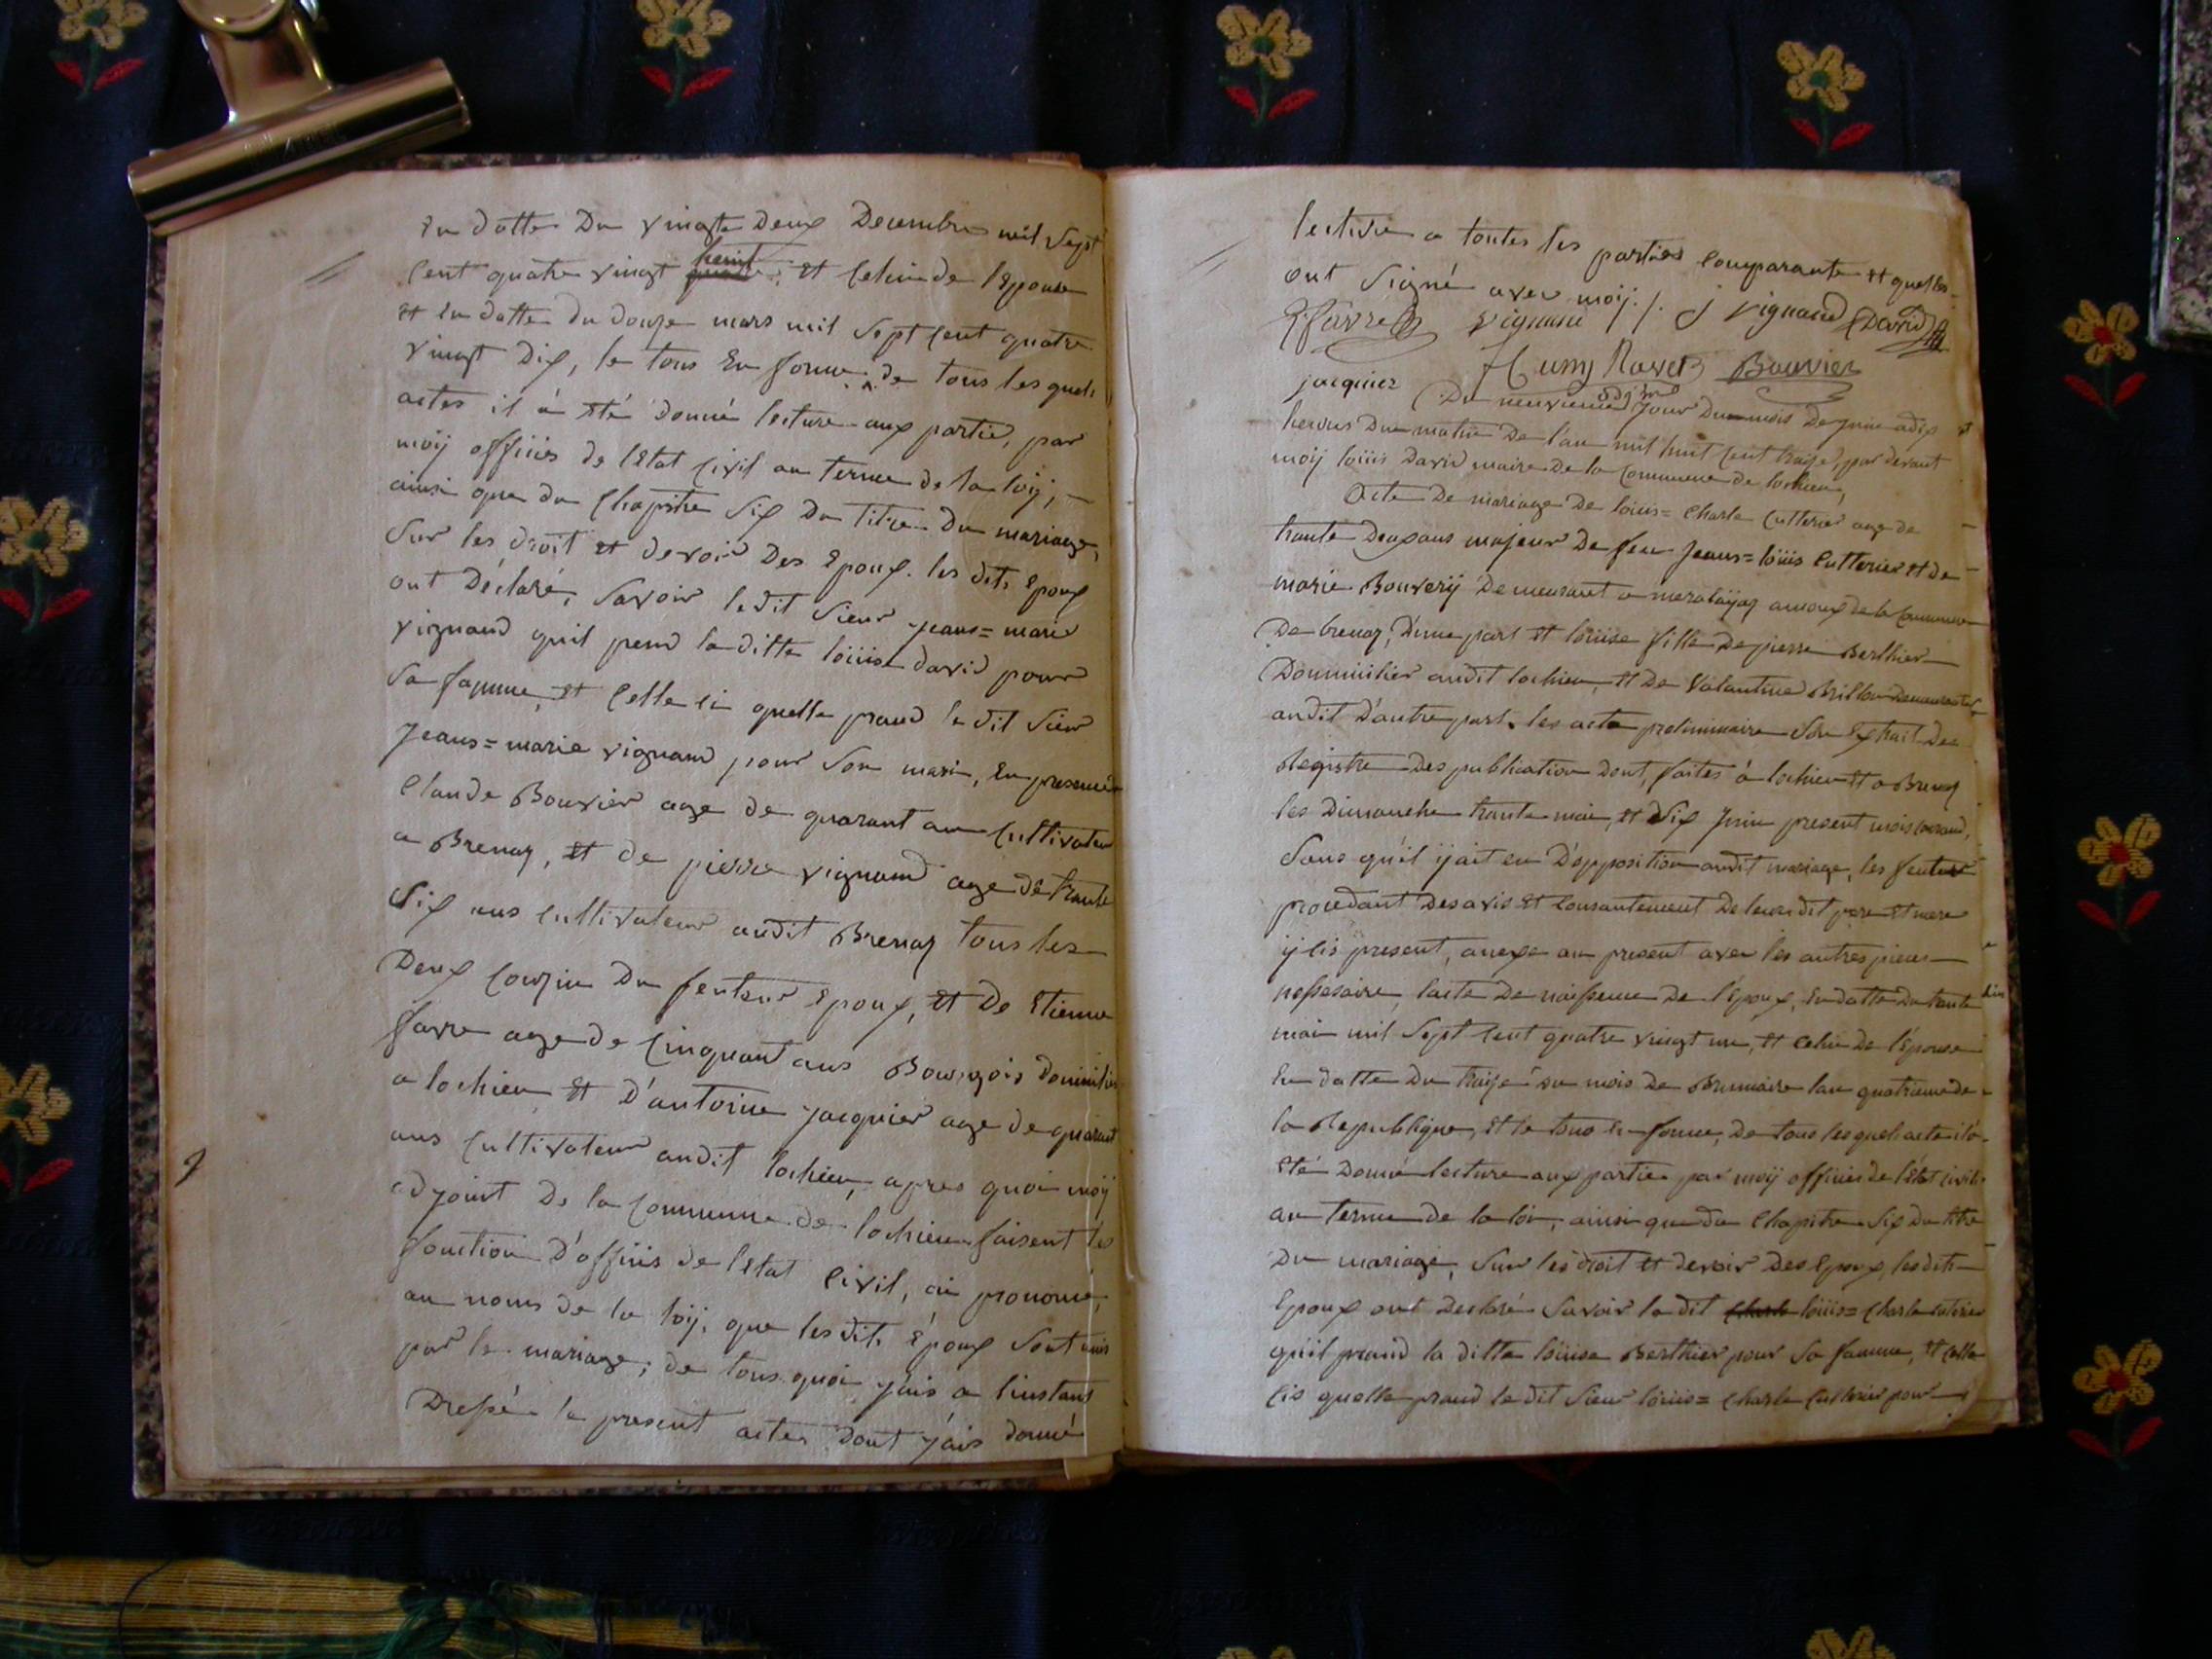 En datte Du vingte Deux Decembre mil Sept
Cent quatre vingt heuit et Celui de l'Epouse
et En datte du douze mars mil Sept Cent quatre
vingt Dix, le tous En forme; de tous les quels
actes il à été donné lecture aux partie, par
moÿ officier de l'Etat Civil au terme de la loÿ,
ainsi que du Chapitre Six Du titre Du mariage,
Sur les droit et devoir Des Epoux. les dits Epoux
ont Déclaré, Savoir le dit Sieur Jeans=marie
vignand quil prend la ditte loüise david pour
Sa famme, et Celle ci quelle prand le dit Sieur
Jeans=marie vignand pour Son mari, En presence
Claude Bouvier age de quarant ans Cultivateur
a Brenaz, et de pierre vignand age de trante
Six ans Cultivateur audit Brenaz tous les
Deux Couzin Du feuteur Epoux, et De Etienne
favre age de Cinquant ans Bourgois Domicilié
a lochieu et D'antoine jacquier age de quarant
ans Cultivateur audit lochieu, apres quoi moÿ
adjoint De la Commune de lochieu faisent les
fonction D'officier de l'Etat Civil, ai prononcé,
au noms de la loÿ, que les dits Epoux Sont unis
par le mariage; de tous quoi j'ais a l'instant
Dressé le present actes dont j'ais donné
lecture a toutes les parties Comparante et quelles
ont Signé avec moÿ ./.
Favre vignand J vignand David
Humy Ravet Bouvier
jacquier
Du neuvieme Jour Du mois De Juin a dix
heures Du matin De l'an mil huit Cent traize, par devant
moÿ loüis David maire De la Commune de lochieu,
Acte De mariage De loüis=Charle Cutterier age de
trante Deux ans majeur De feu Jeans=loüis Cutterier et de
marie Bouverÿ Demeurant a meralëÿaz de la Commune
De brenaz, D'une part et loüise fille De pierre Berthier
Dommicilier audit lochieu, et De Valantine Brillon Demeurante
audit D'autre part. les acte preliminaire Son Extrait Des
Registre Des publication dont faites à lochieu et a Brenaz
les Dimanche trante mai, et Six Juin present mois Courand,
Sans qu'il ÿ ait eu D'opposition audit mariage, les feuteur
procedant Des avis et Consantement De leur dit pere et mere
ÿ cis present, anexe au present avec les autres pieces
nessesaire, l'acte De naissence De l'Epoux, En datte Du trante
mai mil Sept Cent quatre vingt un, et Celui De l'Epouse
En datte Du traize du mois De Brumaire l'an quatrieme de
la Republique, et le tous En forme, De tous les quels acte il à
été Donné lecture aux partie par moÿ officier de l'Etat Civil
au terme de la loi, ainsi que du Chapitre Six Du titre
Du mariage, Sur les droit et devoir Des Epoux, les dits
Epoux ont Declaré Savoir le dit loüis=Charle Cuterier
qu'il prand la ditte loüise Berthier pour Sa famme, et Celle
Cis quelle prand le dit Sieur loüis=Charle Cutterier pour